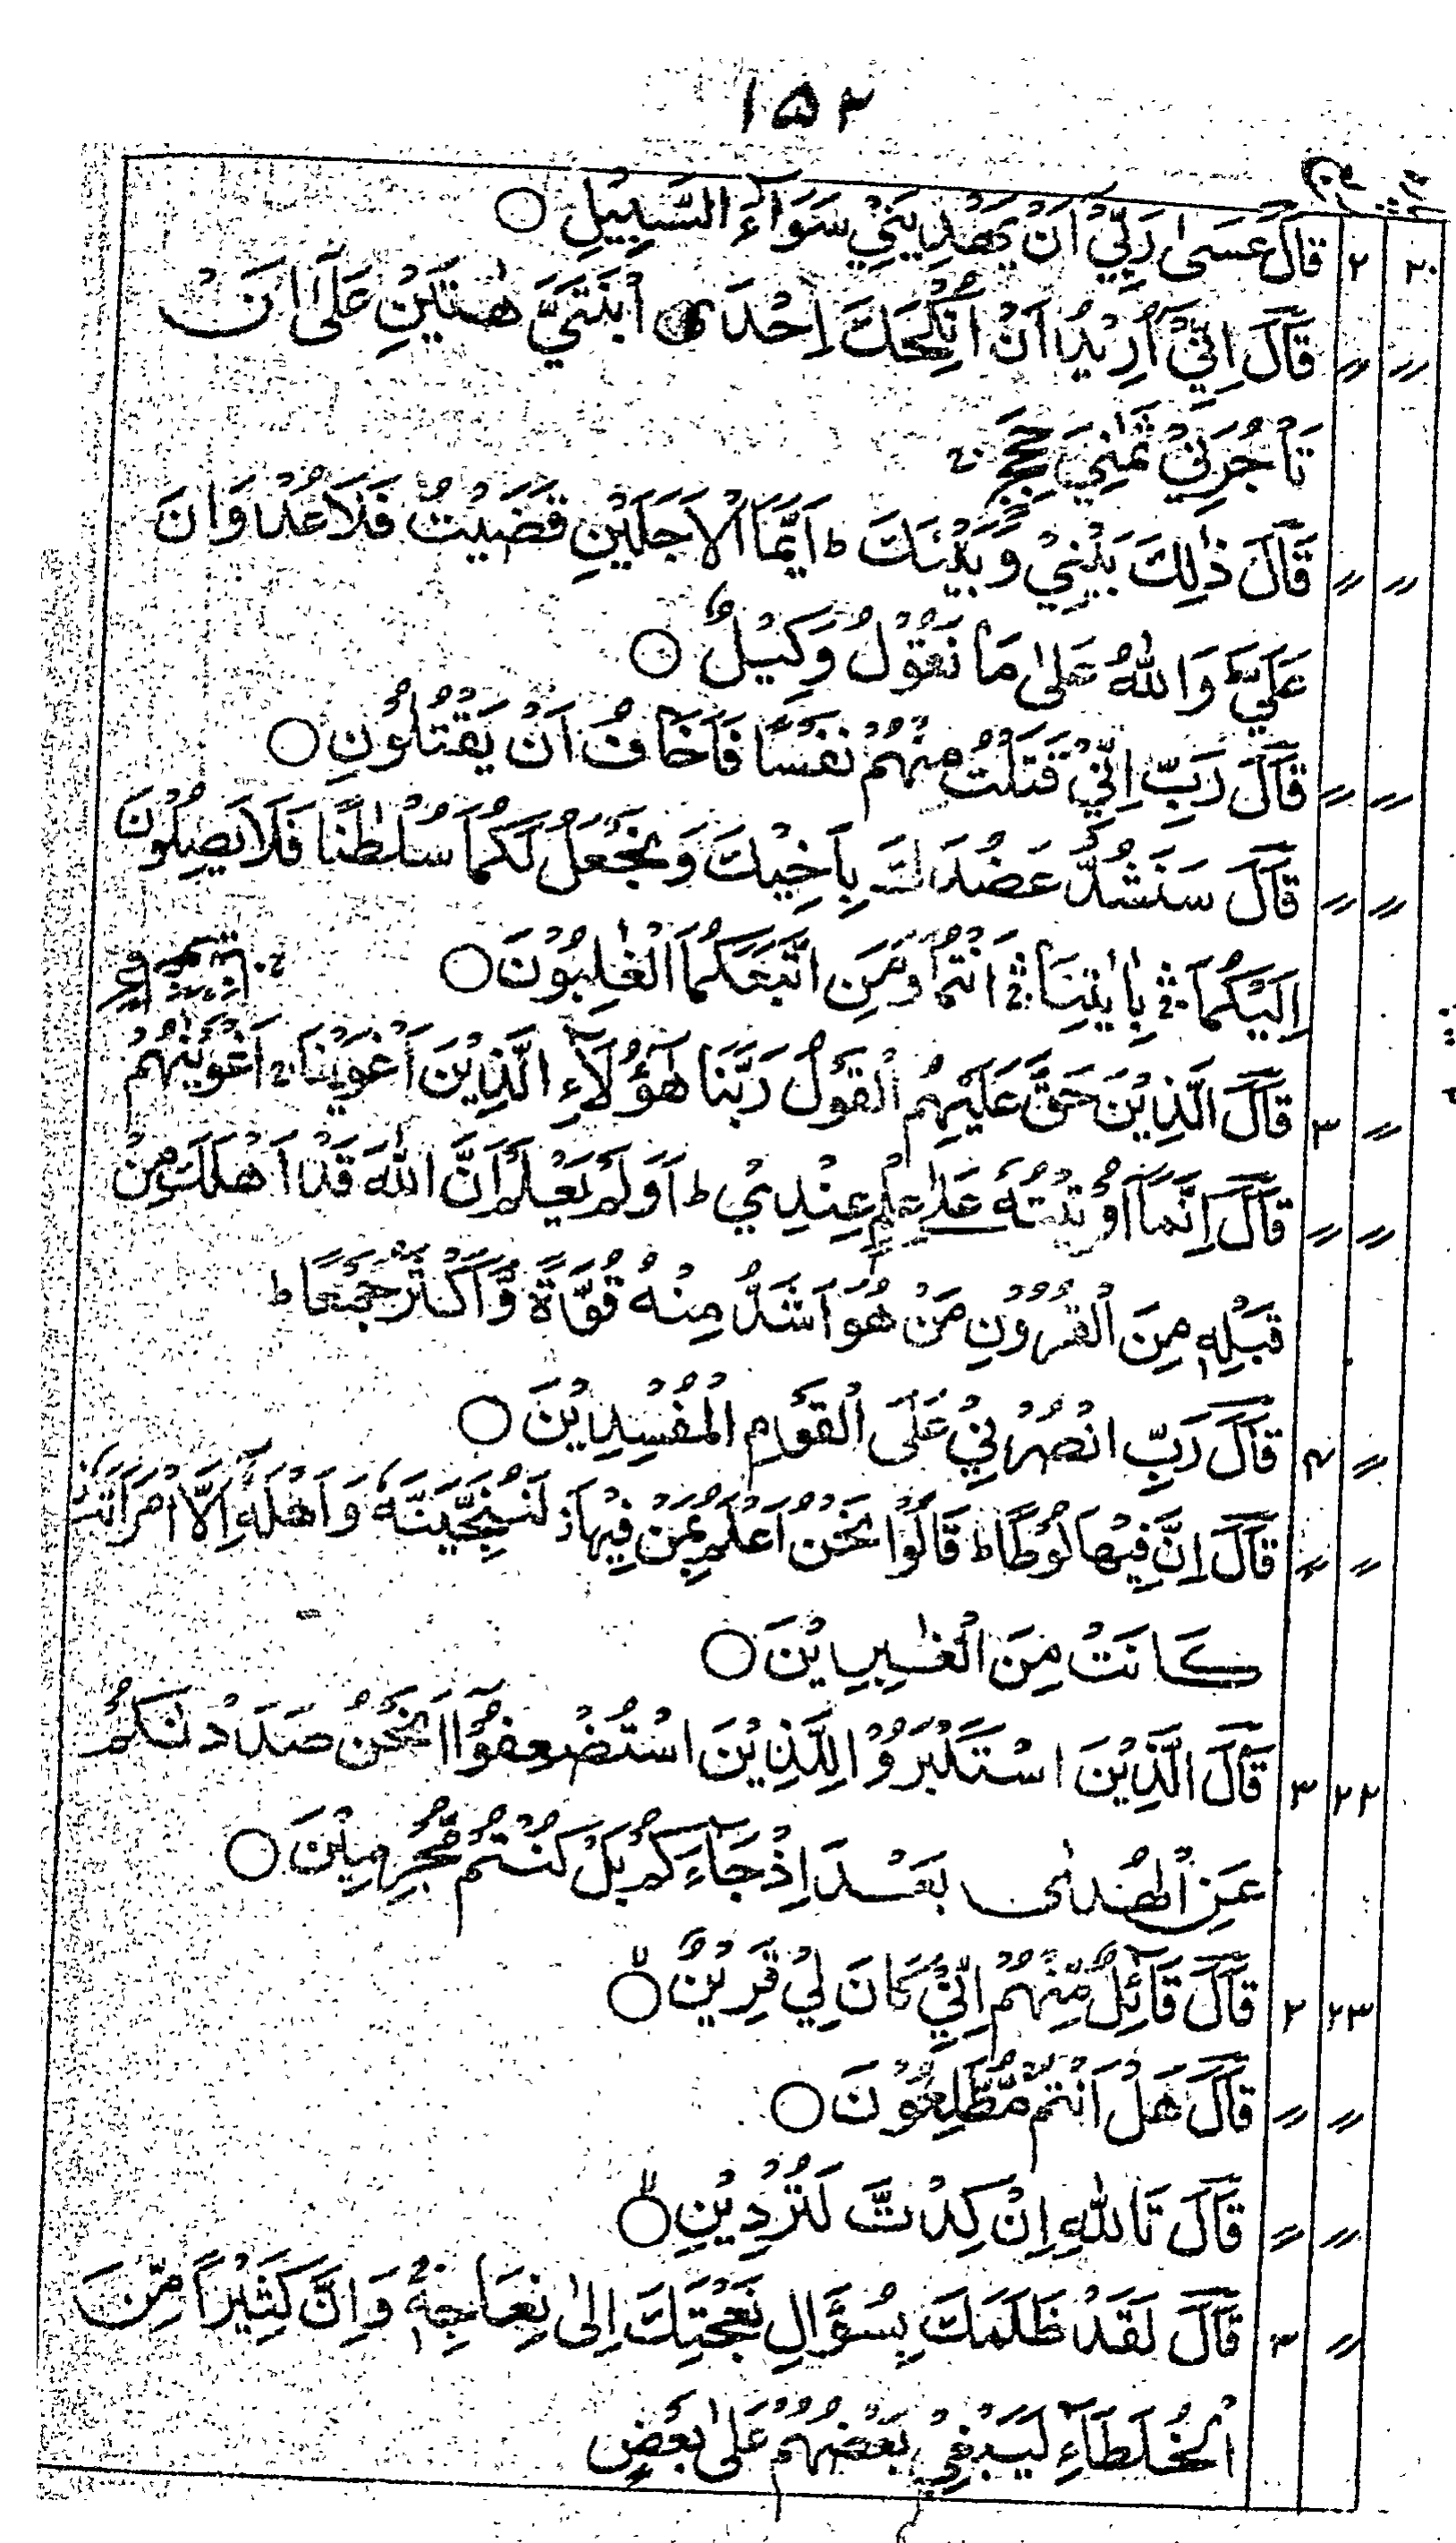 ۱۵۲
۲۰ ۲ قَالَ عَسٰى رَبِّيْٓ اَنْ يَّهْدِيَنِيْ سَوَآءَ السَّبِيْلِ ○
〃 〃 قَالَ اِنِّيْٓ اُرِيْدُ اَنْ اُنْكِحَكَ اِحْدَى ابْنَتَيَّ هٰتَيْنِ عَلٰٓى اَنْ
تَاْجُرَنِيْ ثَمٰنِيَ حِجَجٍ ۚ
〃 〃 قَالَ ذٰلِكَ بَيْنِيْ وَبَيْنَكَ ط اَيَّمَا الْاَجَلَيْنِ قَضَيْتُ فَلَا عُدْوَانَ
عَلَيَّ وَاللّٰهُ عَلٰى مَا نَقُوْلُ وَكِيْلٌ ○
〃 〃 قَالَ رَبِّ اِنِّيْ قَتَلْتُ مِنْهُمْ نَفْسًا فَاَخَافُ اَنْ يَّقْتُلُوْنِ ○
〃 〃 قَالَ سَنَشُدُّ عَضُدَكَ بِاَخِيْكَ وَنَجْعَلُ لَكُمَا سُلْطٰنًا فَلَا يَصِلُوْنَ
اِلَيْكُمَا ۚ بِاٰيٰتِنَا ۚ اَنْتُمَا وَمَنِ اتَّبَعَكُمَا الْغٰلِبُوْنَ ○
〃 ۳ قَالَ الَّذِيْنَ حَقَّ عَلَيْهِمُ الْقَوْلُ رَبَّنَا هٰٓؤُلَآءِ الَّذِيْنَ اَغْوَيْنَا ۚ اَغْوَيْنٰهُمْ
〃 〃 قَالَ اِنَّمَآ اُوْتِيْتُهٗ عَلٰى عِلْمٍ عِنْدِيْ ط اَوَلَمْ يَعْلَمْ اَنَّ اللّٰهَ قَدْ اَهْلَكَ مِنْ
قَبْلِهٖ مِنَ الْقُرُوْنِ مَنْ هُوَ اَشَدُّ مِنْهُ قُوَّةً وَّاَكْثَرُ جَمْعًا ط
〃 ۴ قَالَ رَبِّ انْصُرْنِيْ عَلَى الْقَوْمِ الْمُفْسِدِيْنَ ○
〃 〃 قَالَ اِنَّ فِيْهَا لُوْطًا ط قَالُوْا نَحْنُ اَعْلَمُ بِمَنْ فِيْهَا ز لَنُنَجِّيَنَّهٗ وَاَهْلَهٗٓ اِلَّا امْرَاَتَهٗ
كَانَتْ مِنَ الْغٰبِرِيْنَ ○
۲۲ ۳ قَالَ الَّذِيْنَ اسْتَكْبَرُوْا لِلَّذِيْنَ اسْتُضْعِفُوْٓا اَنَحْنُ صَدَدْنٰكُمْ
عَنِ الْهُدٰى بَعْدَ اِذْ جَآءَكُمْ بَلْ كُنْتُمْ مُّجْرِمِيْنَ ○
۲۳ ۲ قَالَ قَآئِلٌ مِّنْهُمْ اِنِّيْ كَانَ لِيْ قَرِيْنٌ ○
〃 〃 قَالَ هَلْ اَنْتُمْ مُّطَّلِعُوْنَ ○
〃 〃 قَالَ تَاللّٰهِ اِنْ كِدْتَّ لَتُرْدِيْنِ ○
〃 ۳ قَالَ لَقَدْ ظَلَمَكَ بِسُؤَالِ نَعْجَتِكَ اِلٰى نِعَاجِهٖ ۚ وَاِنَّ كَثِيْرًا مِّنَ
الْخُلَطَآءِ لَيَبْغِيْ بَعْضُهُمْ عَلٰى بَعْضٍ